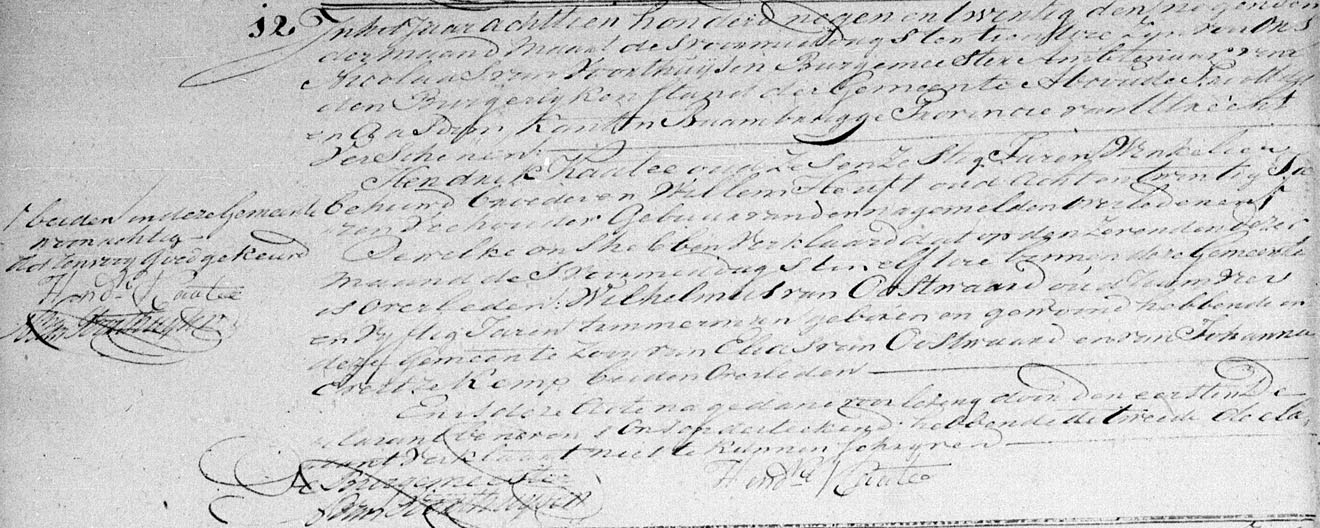 12 In het Jaar achttien honderd negen en twintig den negensten
der maand Maart des voormiddags ten tien ure zyn voor Ons
Nicolaas van Voorthuijsen Burgemeester Ambtenaar van
den Burgerlyken Stand der Gemeente Abcoude Proostdy
en Aasdom Kanton Maambrugge Provincie van Utrecht
Verschenen
Hendrik Kaatee oud Zes en Zestig Jaren Winkelier
behuwd broeder en Willem Heuft oud acht en twintig Ja
ren Veehouder Gebuur van den nagemelden overledenen
Dewelke ons hebben verklaard dat op den Zevenden dezer
maand des voormiddags ten elf ure binnen deze Gemeente
is overleden: Wilhelmus van Oostwaard oud
en Vyftig Jaren timmerman geboren en gewoond hebbende in
deze Gemeente Zoon van Elias van Oostwaard en van Johanna
Kemp beiden Overleden
En is deze Acte na gedane voorlezing door den eersten De
clarant benevens Ons onderteekend hebbende de tweede decla
rant verklaard niet te kunnen schryven
De Burgemeester
Hend.k Kaatee
van Voorthuijsen
beiden in deze Gemeente
woonachtig
Goedgekeurd
Hend.k Kaatee
van Voorthuijsen